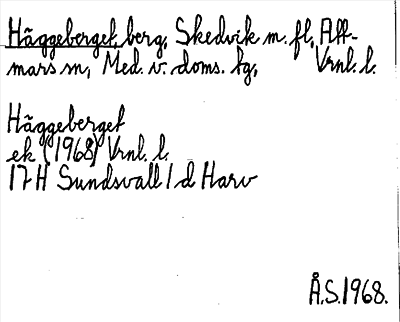 Häggeberget, berg, Skedvik m. fl, Att-
mars sn, Med. v. doms. tg, Vrnl. l.
Häggeberget
ek (1968) Vrnl. l.
17 H Sundsvall 1 d Harv
Å.S. 1968.